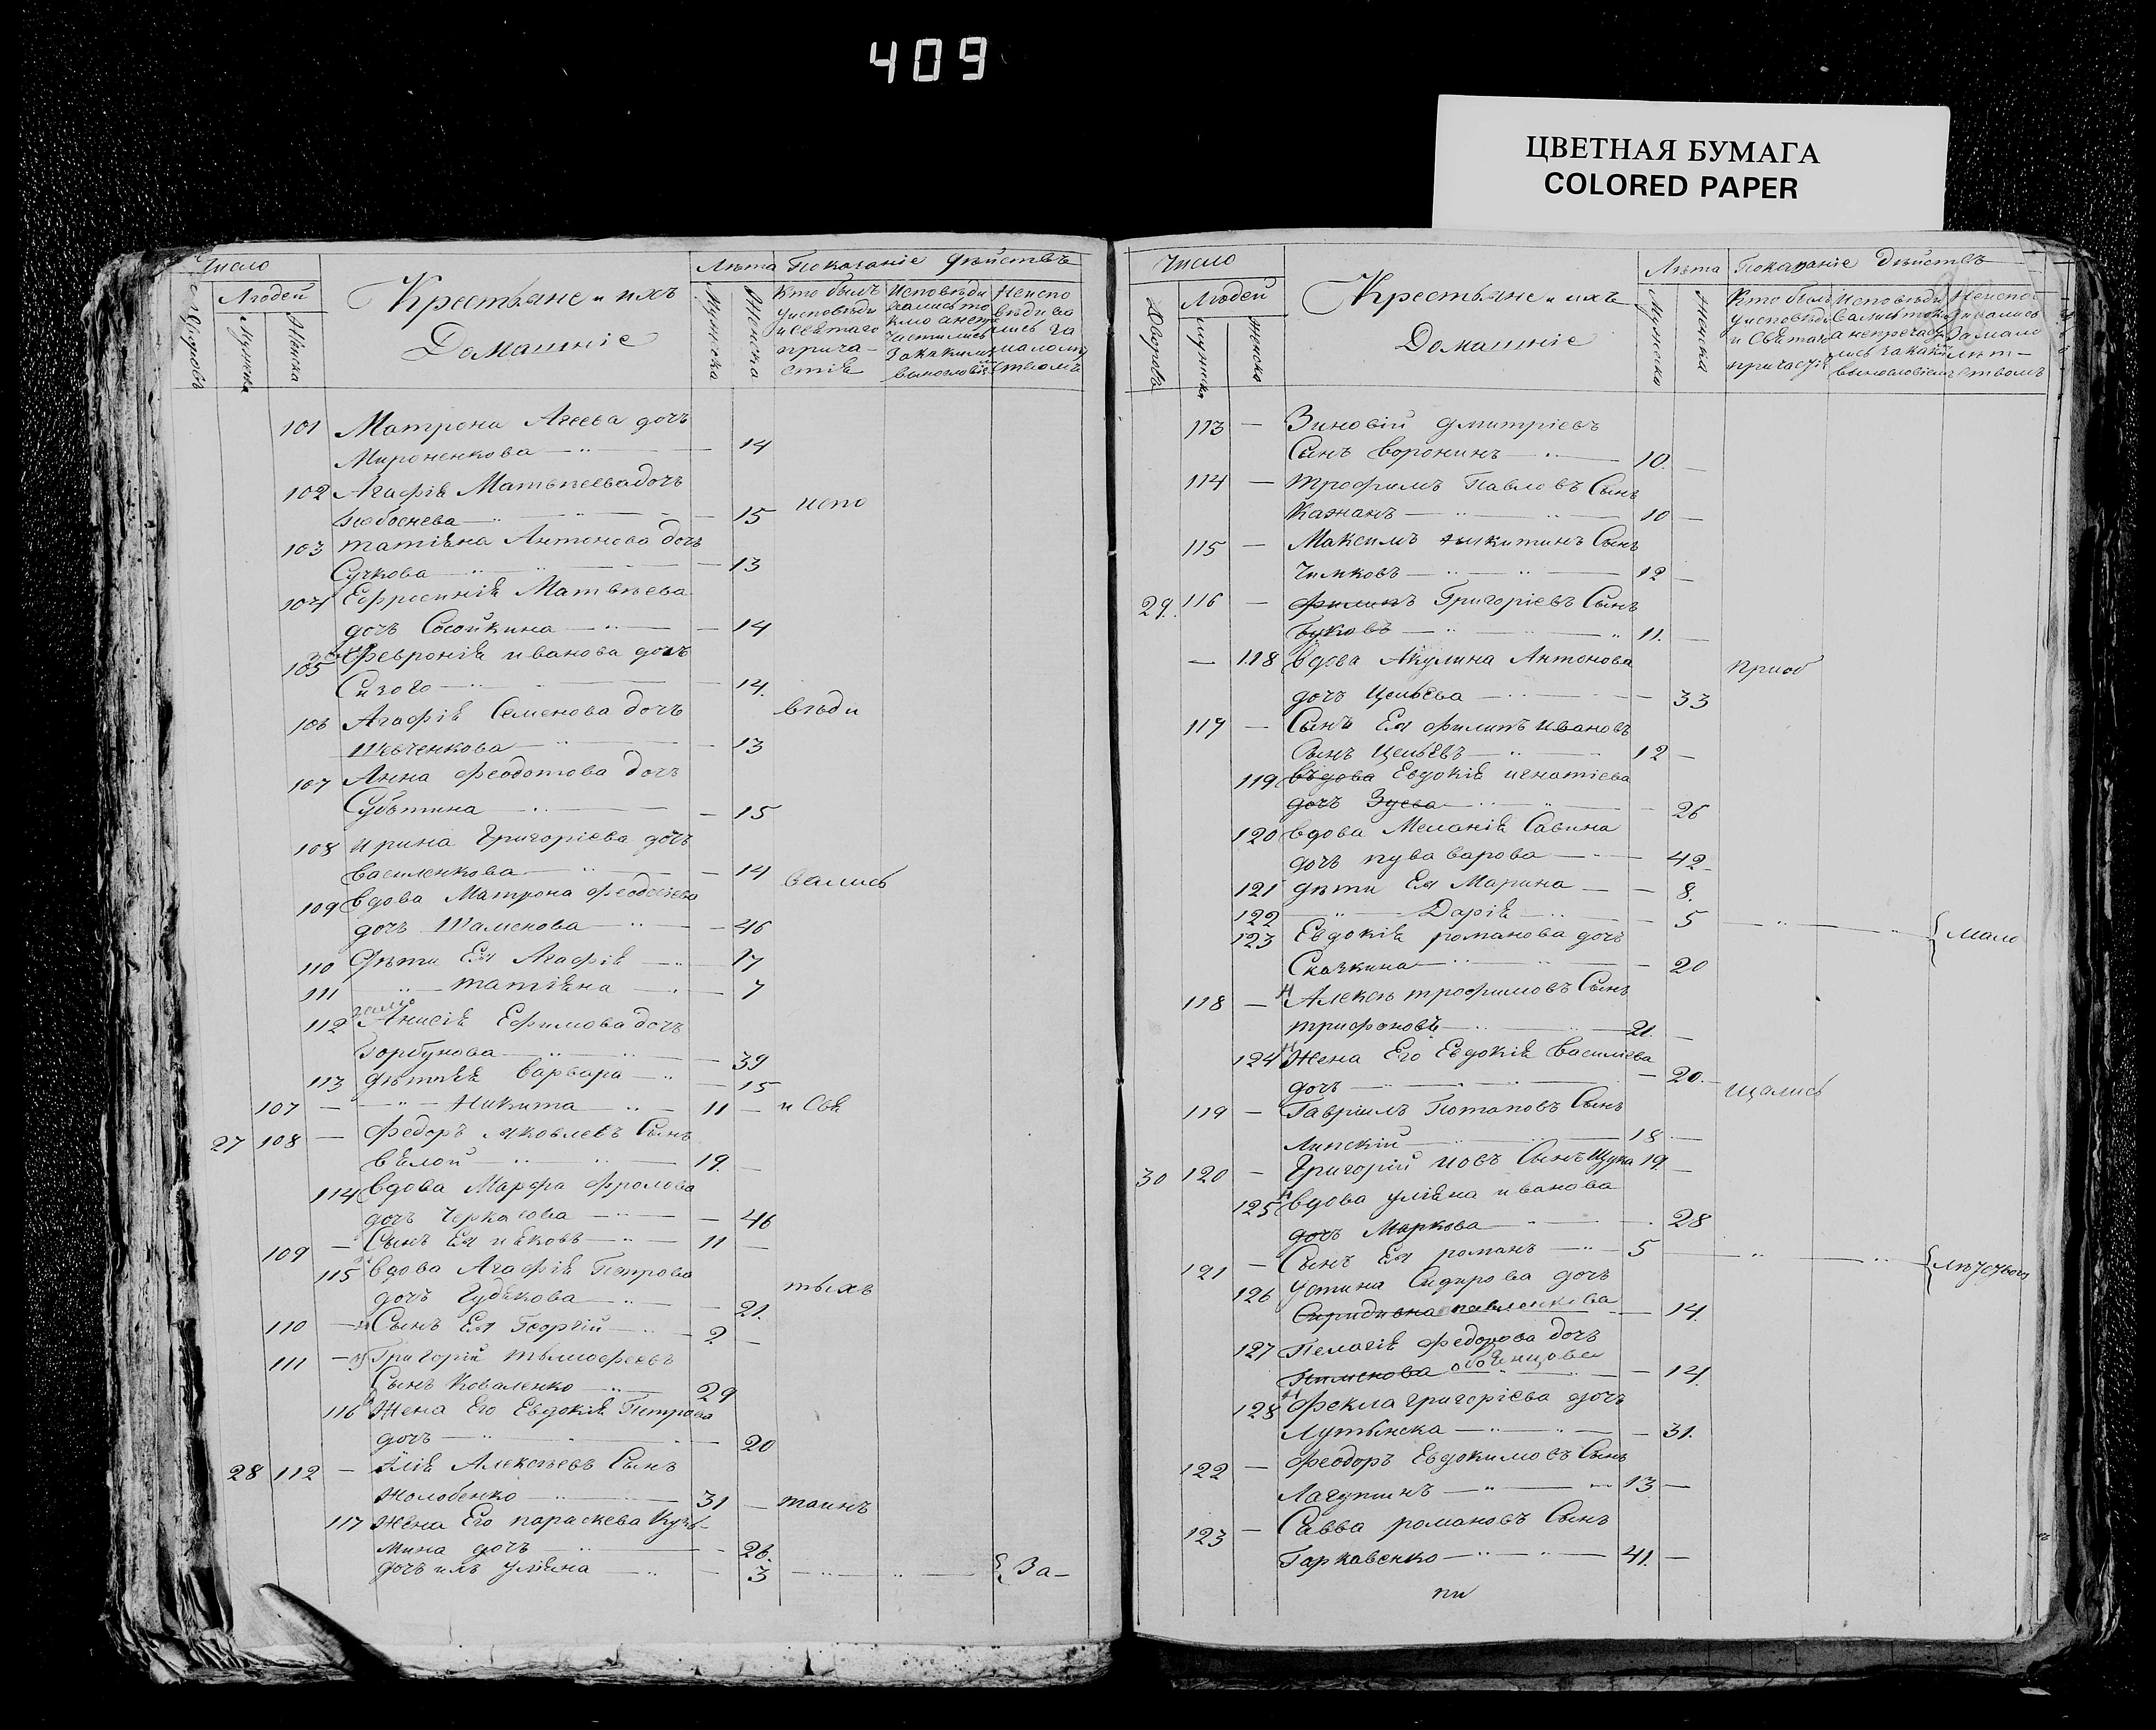 409
ЦВЕТНАЯ БУМАГА
COLORED PAPER
Число
Людей
Дворовъ
Мужска
Женска
Крестьяне и ихъ
Домашніе
Лѣта
Мужска
Женска
Показаніе дѣйствъ
Кто былъ
у исповѣди
и святаго
прича-
стія
Исповѣди
вались то
кмо а не
частились
За какимъ
винословіемъ
Неиспо
вѣдива
лись за
малолѣт
ствомъ
101 Матрона Агеева дочь
Мироненкова — 14
102 Агафія Матвѣева дочь
15 испо
103 татіяна Антонова дочь
Сучкова — 13
104 Ефросинія Матвѣева
дочь Сосойкина — 14
105 Февронія иванова дочь
Сизого — 14.
106 Агафія Семенова дочь вѣди
Шевченкова — 13
107 Анна Феодотова дочь
Субѣтина — 15
108 ирина Григоріева дочь
Василенкова — 14 вались
109 вдова Матрона
дочь Шаменова — 46
110 Дѣти Ея Агафія — 17
111 — татіяна — 7
112 Анисія Ефимова дочь
Горбунова — 39
113 Варвара — 15
107 — Никита — 11 — и Свя
27 108 — Федоръ Яковлевъ Сынъ
Бѣлой — 19. —
114 вдова Марфа Фролова
дочь Черкасова — 46
109 — Сынъ Ея ияковъ — 11 —
115 вдова Агафія Петрова
дочь Гудякова — 21. тыхъ
110 — Сынъ Ея Георгій — 2 —
111 — Григорій
Сынъ Коваленко — 29
116 Жена Его Евдокія Петрова
дочь — 20
28 112 — Илія Алексѣевъ Сынъ
Жолобенко — 31 — таинъ
117 Жена Его параскева Кузь-
мина дочь — 26.
дочь ихъ уліяна — 3 — За-
Число
Людей
Дворовъ
мужска
женско
Крестьяне и ихъ
Домашніе
Лѣта
Мужеско
Женска
Показаніе Дѣйствъ
Кто былъ
у исповѣди
и Святаго
причастія
113 — Зиновій дмитріевъ
Сынъ Воронинъ — 10. —
114 — трофимъ Павловъ Сынъ
Кажанъ — 10 —
115 — Максимъ никитинъ Сынъ
Чимковъ — 12 —
29. 116 — Филипъ Григоріевъ Сынъ
Буковъ — 11. —
— 118 вдова Акулина Антонова приоб
дочь — 33
117 — Сынъ Ея филипъ ивановъ
Сынъ — 12 —
119 въдова Евдокія игнатіева
дочь Зуева — 26
120 вдова Меланія Савина
дочь пувварова — 42
121 дѣти Ея Марина — 8.
122 — Дарія — 5 — мало
123 Евдокія романова дочь
Скачкина — 20
118 — Алексѣ трофимовъ Сынъ
трифоновъ — 21. —
124 Жена Его Евдокія Василіева
дочь — 20. — щались
119 — Гавріилъ Потаповъ Сынъ
Липскій — 18 —
30 120 — Григорій иовъ Сынъ Щука 19. —
125 вдова уліяна иванова
дочь Маркова — 28
121 — Сынъ Ея романъ — 5 —
126 Устина Сидорова дочь
павленкова — 14.
127 Пелагія Федорова дочь
Пименова — 14.
128 Фекла григоріева дочь
— 31.
122 — Феодоръ Евдокимовъ Сынъ
Лагутинъ — 13 —
123 — Савва романовъ Сынъ
Гаркавенко — 41. —
пи